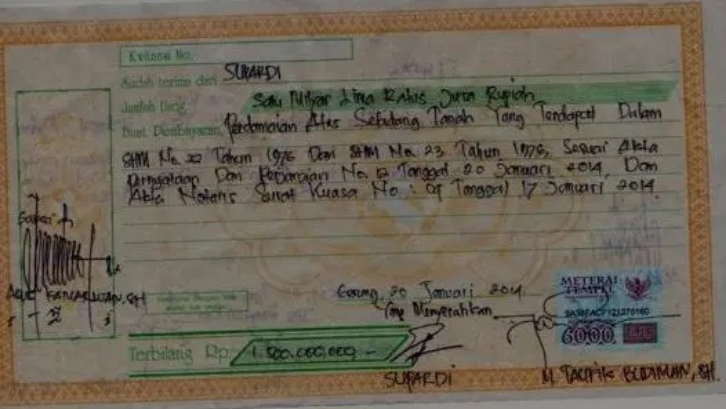 Kwitansi No.
Sudah terima dari SUPARDI
Jumlah Uang Satu Milyar Lima Ratus Juta Rupiah
Buat Pembayaran Perdamaian Atas Sebidang Tanah Yang Terdapat Dalam
SHM No. 22 Tahun 1976 Dan SHM No. 23 Tahun 1976, Sesuai Akta
Pernyataan Dan Perdamaian No. 12 Tanggal 20 Januari 2014, Dan
Akta Notaris Surat Kuasa No : 09 Tanggal 17 Januari 2014
Saksi
SH
20 Januari 2014
Yang Menyerahkan
METERAI
TEMPEL
6000
Terbilang Rp. 1.500.000.000,-
SUPARDI
M. TAUFIK BUDIMAN, SH.